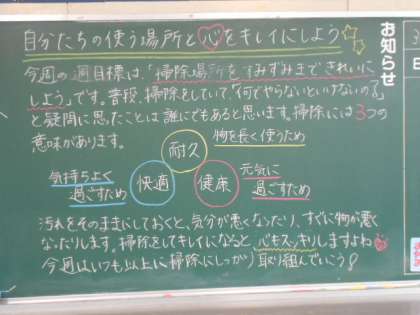 自分たちの使う場所と心をキレイにしよう
お知らせ
今週の週目標は、「掃除場所をすみずみまできれいに
しよう」です。普段、掃除をしていて、「何でやらないといけないの？」
と疑問に思ったことは誰にでもあると思います。掃除には3つの
意味があります。
物を長く使うため
耐久
気持ちよく
過ごすため
快適
健康
元気に
過ごすため
汚れをそのままにしておくと、気分が悪くなったり、すぐに物が悪く
なったりします。掃除をしてキレイになると、心もスッキリしますよね
今週はいつも以上に掃除にしっかり取り組んでいこう!